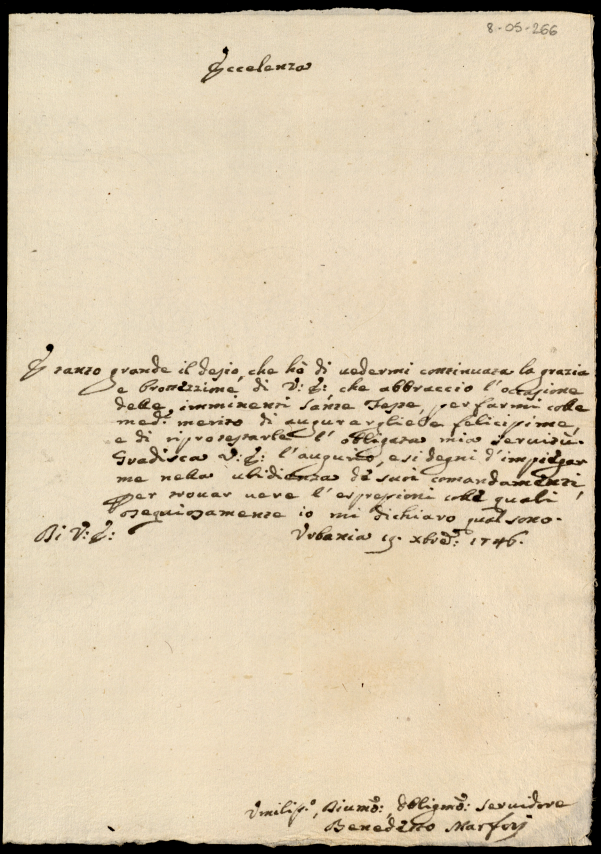 8-05-266
Eccelenza
E tanto grande il desio, che hò di vedermi continuata la grazia
e protezzione di V: E: che abbraccio l'occasione
delle imminenti Sante Feste, per farmi colle
med.e merito di augurargliele felicissime,
e di riprotestarle l'obligata mia servitù.
Gradisca V: E: l'augurio, e si degni d'impiegar
me nella ubidienza de suoi comandamenti,
per trovar vere l'espressioni colle quali
ossequiosamente io mi dichiaro qual sono.
Di V: E:
Urbania 19. Xbre: 1746.
Umiliss.o, Divmo: Obligmo: Servidore
Benedetto Marfori